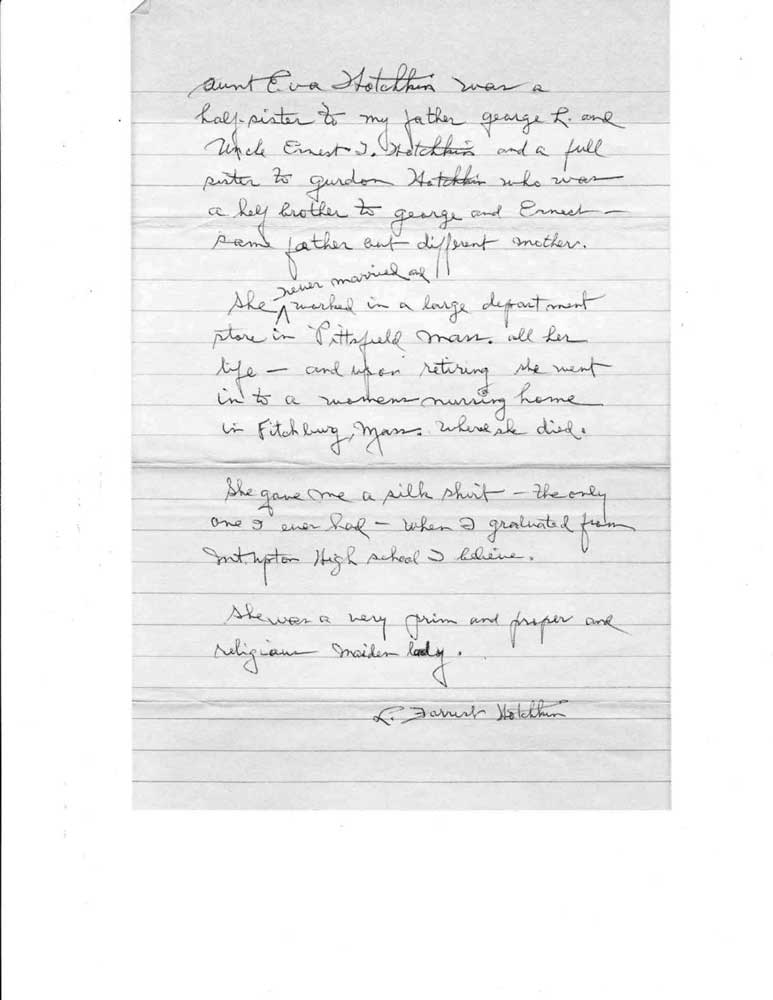 Aunt Eva Hotchkin was a
half-sister to my father George L. and
Uncle Ernest J. Hotchkin and a full
sister to Gurdon Hotchkin who was
a half brother to George and Ernest —
same father but different mother.
never married and
She worked in a large department
store in Pittsfield Mass. all her
life — and upon retiring she went
in to a womens nursing home
in Fitchburg, Mass. where she died.
She gave me a silk shirt — the only
one I ever had — when I graduated from
Mt. Upton High school I believe.
She was a very prim and proper and
religious maiden lady.
L. Forrest Hotchkin